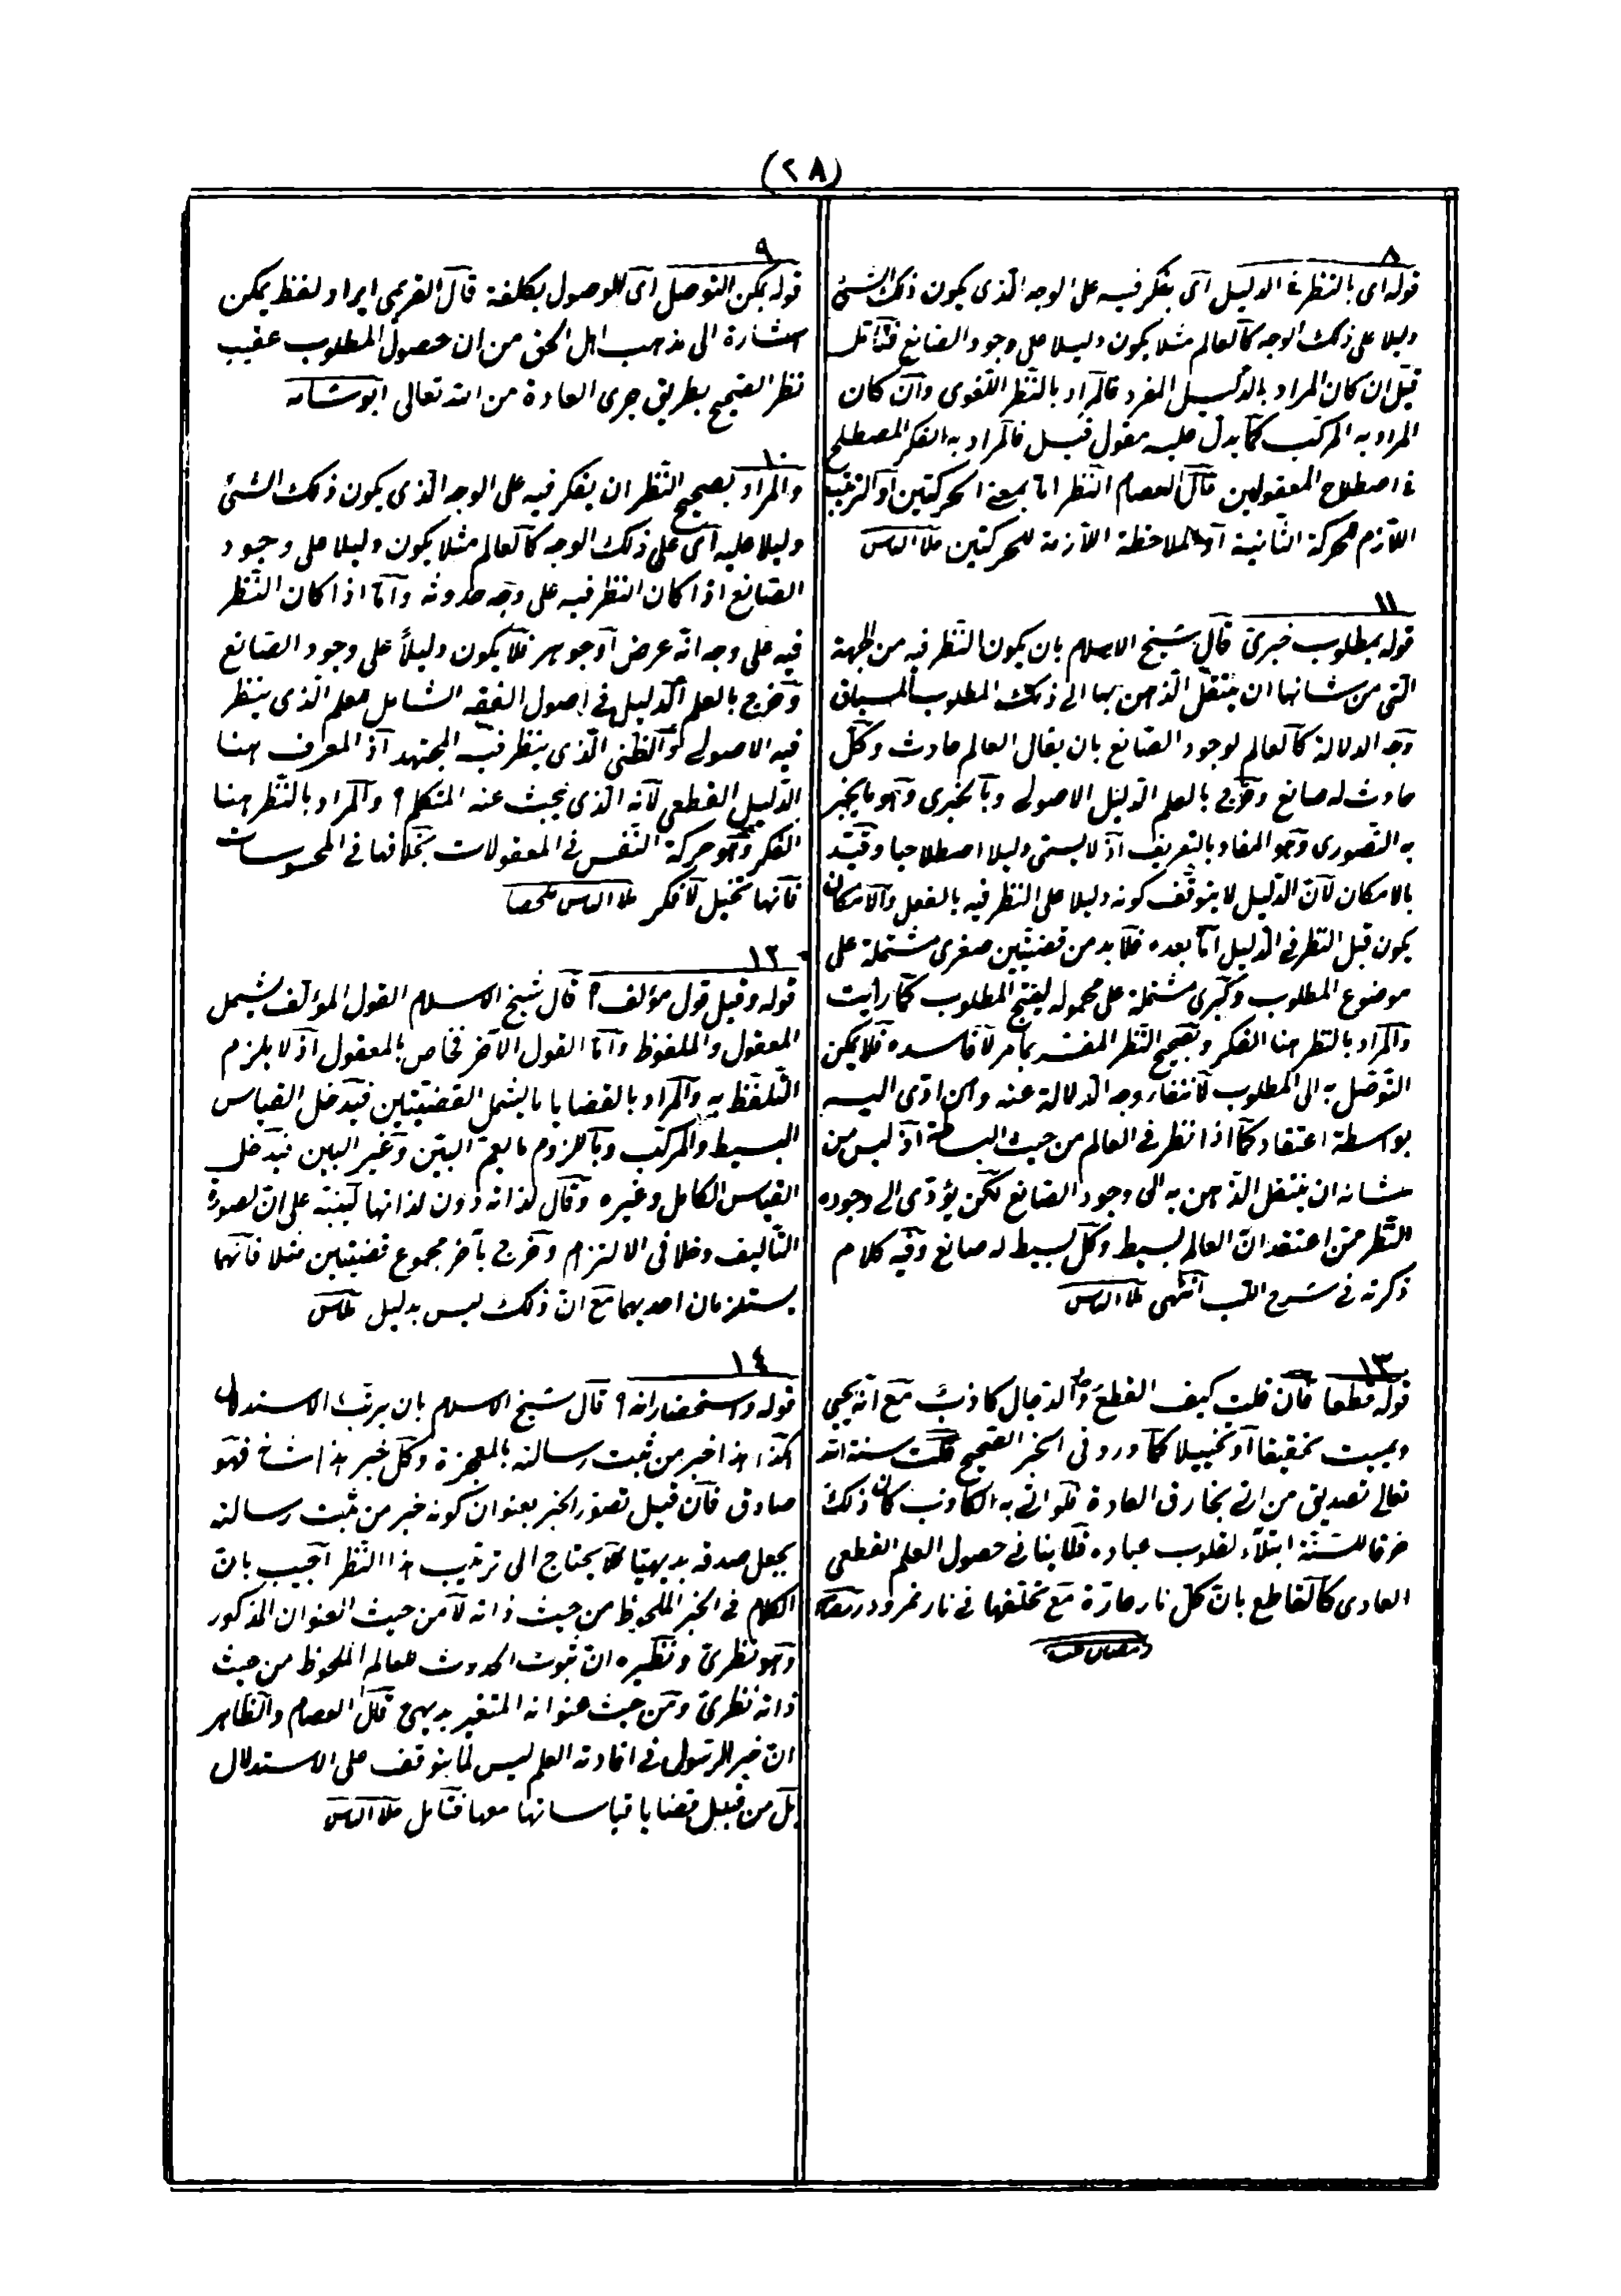 (٢٨)
٨
قوله اى بالنظر فى الدليل اى بفكر فيه على الوجه الذى يكون ذلك الشئ
دليلا على ذلك الوجه كالعالم مثلا يكون دليلا على وجود الصانع فتأمل
قيل ان كان المراد بالدليل المفرد فالمراد بالنظر اللغوى وان كان
المراد به المركب كما يدل عليه مقول قيل فالمراد به الفكر المصطلح
فى اصطلاح المعقولين قال العصام النظر اما بمعنى الحركتين او الترتيب
اللازم للحركة الثانية او الملاحظة اللازمة للحركتين ملا الياس
١١
قوله بمطلوب خبرى قال شيخ الاسلام بان يكون النظر فيه من الجهة
التى من شانها ان ينتقل الذهن بها الى ذلك المطلوب المسماة
وجه الدلالة كالعالم لوجود الصانع بان يقال العالم حادث وكل
حادث له صانع وخرج بالعلم الدليل الاصولى وبالخبرى وهو ما يخبر
به التصورى وهو المفاد بالتعريف اذ لا يسمى دليلا اصطلاحيا وقيد
بالامكان لان الدليل لا يتوقف كونه دليلا على النظر فيه بالفعل والامكان
يكون قبل النظر فى الدليل اما بعده فلا بد من قضيتين صغرى مشتملة على
موضوع المطلوب وكبرى مشتملة على محموله لينتج المطلوب كما رأيت
والمراد بالنظر هنا الفكر وبصحيح النظر المفسر بما مر لا فاسده فلا يمكن
التوصل به الى المطلوب لانتفاء وجه الدلالة عنه وان ادى اليه
بواسطة اعتقاد كما اذا نظر فى العالم من حيث البساطة اذ ليس من
شانه ان ينتقل الذهن به الى وجود الصانع لكن يؤدى الى وجوده
النظر ممن اعتقد ان العالم بسيط وكل بسيط له صانع وفيه كلام
ذكرته فى شرح اللب انتهى ملا الياس
١٣
قوله قطعا فان قلت كيف القطع والدجال كاذب مع انه يحيى
ويميت تحقيقا او تخييلا كما ورد فى الخبر الصحيح قلت سنة الله
تعالى تصديق من اتى بخارق العادة فلو اتى به الكاذب كان ذلك
خرقا للسنة ابتلاء لقلوب عباده فلا ينافى حصول العلم القطعى
العادى كالقاطع بان كل نار حارة مع تخلفها فى نار نمرود
٩
قوله يمكن التوصل اى الوصول بكلفة قال القريمى ايراد لفظ يمكن
اشارة الى مذهب اهل الحق من ان حصول المطلوب عقيب
نظر الصحيح بطريق جرى العادة من الله تعالى
١٠
والمراد بصحيح النظر ان يفكر فيه على الوجه الذى يكون ذلك الشئ
دليلا عليه اى على ذلك الوجه كالعالم مثلا يكون دليلا على وجود
الصانع اذا كان النظر فيه على وجه حدوثه واما اذا كان النظر
فيه على وجه انه عرض او جوهر فلا يكون دليلاً على وجود الصانع
وخرج بالعلم الدليل فى اصول الفقه الشامل للعلم الذى ينظر
فيه الاصولى والظنى الذى ينظر فيه المجتهد اذ المعرف هنا
الدليل القطعى لانه الذى يبحث عنه المتكلم والمراد بالنظر هنا
الفكر وهو حركة النفس فى المعقولات بخلافها فى المحسوسات
فانها تخيل لا فكر ملا الياس ملخصا
١٢
قوله وقيل قول مؤلف قال شيخ الاسلام القول المؤلف يشمل
المعقول والملفوظ واما القول الآخر فخاص بالمعقول اذ لا يلزم
التلفظ به والمراد بالقضايا ما يشمل القضيتين فيدخل القياس
البسيط والمركب وباللزوم ما يعم البين وغير البين فيدخل
القياس الكامل وغيره وقال لذاته دون لذاتها لينبه على ان لصورة
التأليف دخلا فى الالتزام وخرج بآخر مجموع قضيتين مثلا فانهما
يستلزمان احديهما مع ان ذلك ليس بدليل
١٤
قوله واستحضار انه قال شيخ الاسلام بان يرتب الاستدلال
هكذا هذا خبر من ثبت رسالته بالمعجزة وكل خبر هذا شانه فهو
صادق فان قيل تصور الخبر بعنوان كونه خبر من ثبت رسالته
يجعل صدقه بديهيا فلا يحتاج الى ترتيب هذا النظر اجيب بان
الكلام فى الخبر الملحوظ من حيث ذاته لا من حيث العنوان المذكور
وهو نظرى ونظيره ان ثبوت الحدوث للعالم الملحوظ من حيث
ذاته نظرى ومن حيث عنوانه المتغير بديهى قال العصام والظاهر
ان خبر الرسول فى افادته العلم ليس لما يتوقف على الاستدلال
بل من قبيل قضايا قياساتها معها فتأمل ملا الياس